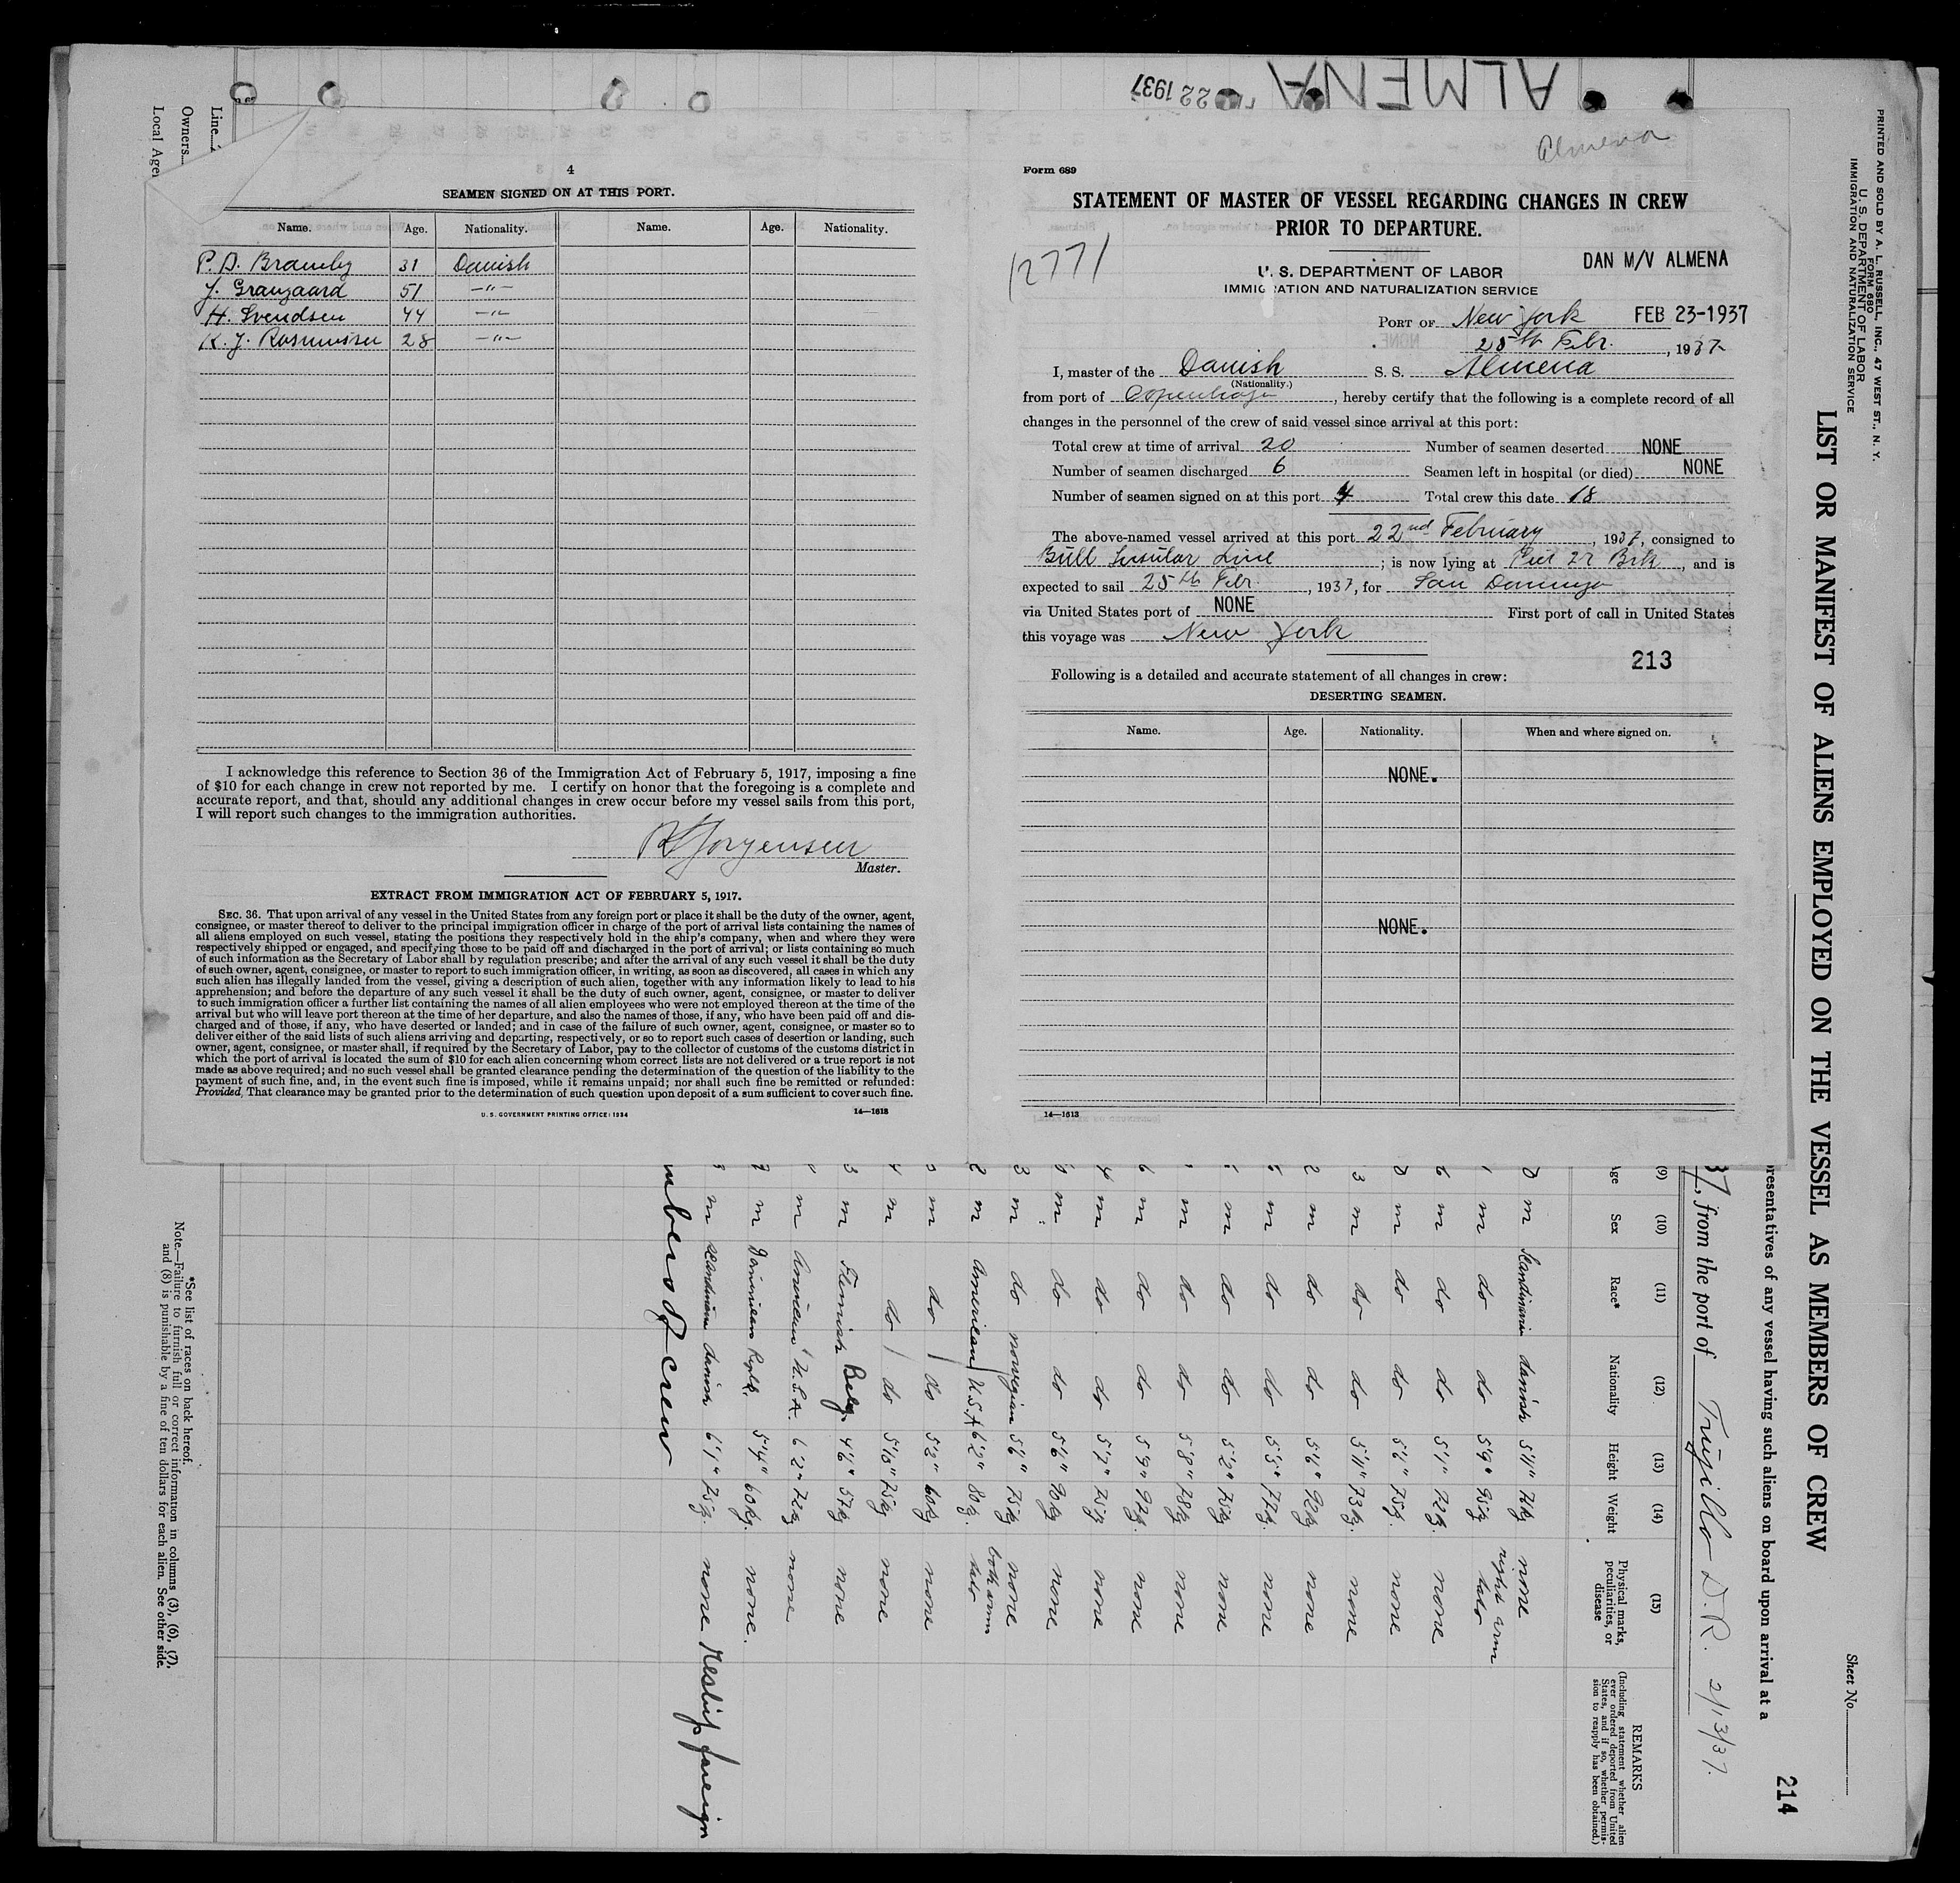 ALMENA
22 1937
Line
Owners
Local Agen
4
SEAMEN SIGNED ON AT THIS PORT.
Name. Age. Nationality. Name. Age. Nationality.
P. D. Bramby 31 Danish
J. Grangaard 51 —"—
H. Svendsen 44 —"—
K. J. Rasmussen 28 —"—
I acknowledge this reference to Section 36 of the Immigration Act of February 5, 1917, imposing a fine
of $10 for each change in crew not reported by me. I certify on honor that the foregoing is a complete and
accurate report, and that, should any additional changes in crew occur before my vessel sails from this port,
I will report such changes to the immigration authorities.
Jorgensen
Master.
EXTRACT FROM IMMIGRATION ACT OF FEBRUARY 5, 1917.
SEC. 36. That upon arrival of any vessel in the United States from any foreign port or place it shall be the duty of the owner, agent,
consignee, or master thereof to deliver to the principal immigration officer in charge of the port of arrival lists containing the names of
all aliens employed on such vessel, stating the positions they respectively hold in the ship's company, when and where they were
respectively shipped or engaged, and specifying those to be paid off and discharged in the port of arrival; or lists containing so much
of such information as the Secretary of Labor shall by regulation prescribe; and after the arrival of any such vessel it shall be the duty
of such owner, agent, consignee, or master to report to such immigration officer, in writing, as soon as discovered, all cases in which any
such alien has illegally landed from the vessel, giving a description of such alien, together with any information likely to lead to his
apprehension; and before the departure of any such vessel it shall be the duty of such owner, agent, consignee, or master to deliver
to such immigration officer a further list containing the names of all alien employees who were not employed thereon at the time of the
arrival but who will leave port thereon at the time of her departure, and also the names of those, if any, who have been paid off and dis-
charged and of those, if any, who have deserted or landed; and in case of the failure of such owner, agent, consignee, or master so to
deliver either of the said lists of such aliens arriving and departing, respectively, or so to report such cases of desertion or landing, such
owner, agent, consignee, or master shall, if required by the Secretary of Labor, pay to the collector of customs of the customs district in
which the port of arrival is located the sum of $10 for each alien concerning whom correct lists are not delivered or a true report is not
made as above required; and no such vessel shall be granted clearance pending the determination of the question of the liability to the
payment of such fine, and, in the event such fine is imposed, while it remains unpaid; nor shall such fine be remitted or refunded:
Provided, That clearance may be granted prior to the determination of such question upon deposit of a sum sufficient to cover such fine.
U. S. GOVERNMENT PRINTING OFFICE: 1934 14—1613
Almena
Form 689
STATEMENT OF MASTER OF VESSEL REGARDING CHANGES IN CREW
PRIOR TO DEPARTURE.
12771
DAN M/V ALMENA
U. S. DEPARTMENT OF LABOR
IMMIGRATION AND NATURALIZATION SERVICE
PORT OF New York FEB 23-1937
25th Febr. , 1937
I, master of the Danish S. S. Almena
(Nationality.)
from port of Copenhagen , hereby certify that the following is a complete record of all
changes in the personnel of the crew of said vessel since arrival at this port:
Total crew at time of arrival 20 Number of seamen deserted NONE
Number of seamen discharged 6 Seamen left in hospital (or died) NONE
Number of seamen signed on at this port 4 Total crew this date 18
The above-named vessel arrived at this port 22nd February , 1937, consigned to
Bull Insular Line ; is now lying at Pier 27 Brk , and is
expected to sail 25th Febr. , 1937, for San Domingo
via United States port of NONE First port of call in United States
this voyage was New York
213
Following is a detailed and accurate statement of all changes in crew:
DESERTING SEAMEN.
Name. Age. Nationality. When and where signed on.
NONE.
NONE.
14—1613
PRINTED AND SOLD BY A. L. RUSSELL, INC., 47 WEST ST., N. Y.
FORM 680
U. S. DEPARTMENT OF LABOR
IMMIGRATION AND NATURALIZATION SERVICE
Sheet No.
LIST OR MANIFEST OF ALIENS EMPLOYED ON THE VESSEL AS MEMBERS OF CREW
214
presentatives of any vessel having such aliens on board upon arrival at a
37, from the port of Trujillo D.R. 2/13/37.
(9) (10) (11) (12) (13) (14) (15) REMARKS
Age Sex Race* Nationality Height Weight Physical marks, peculiarities, or disease
(Including statement whether alien ever ordered deported from United States, and if so, whether permission to reapply has been obtained.)
0 m Skandinavia danish 5'11" 74kg none
1 m do do 5'9" 95kg right arm tato
6 m do do 5'1" 72kg. none
0 m do do 5'6" 75kg. none
3 m do do 5'11" 73kg. none
2 m do do 5'6" 92kg none
5 m do do 5'5" 77kg. none
m do do 5'2" 75kg none
m do do 5'8" 78kg. none
6 m do do 5'9" 97kg. none
4 m do do 5'7" 75kg. none
m do do 5'6" 90kg none
3 m do norwegian 5'6" 75kg none
2 m American U.S.A 6'2" 80kg. both arms tato
m do do 5'3" 60kg none
4 m do do 5'10" 75kg none
3 m Flemish Belg. 4'6" 57kg none
m American U.S.A. 6'2" 72kg none
7 m Dominien Rpbl. 5'4" 60kg. none.
m Skandinavia danish 6'1" 75kg. none Reship foreign
mbers of crew
*See list of races on back hereof.
Note.—Failure to furnish full or correct information in columns (3), (6), (7),
and (8) is punishable by a fine of ten dollars for each alien. See other side.